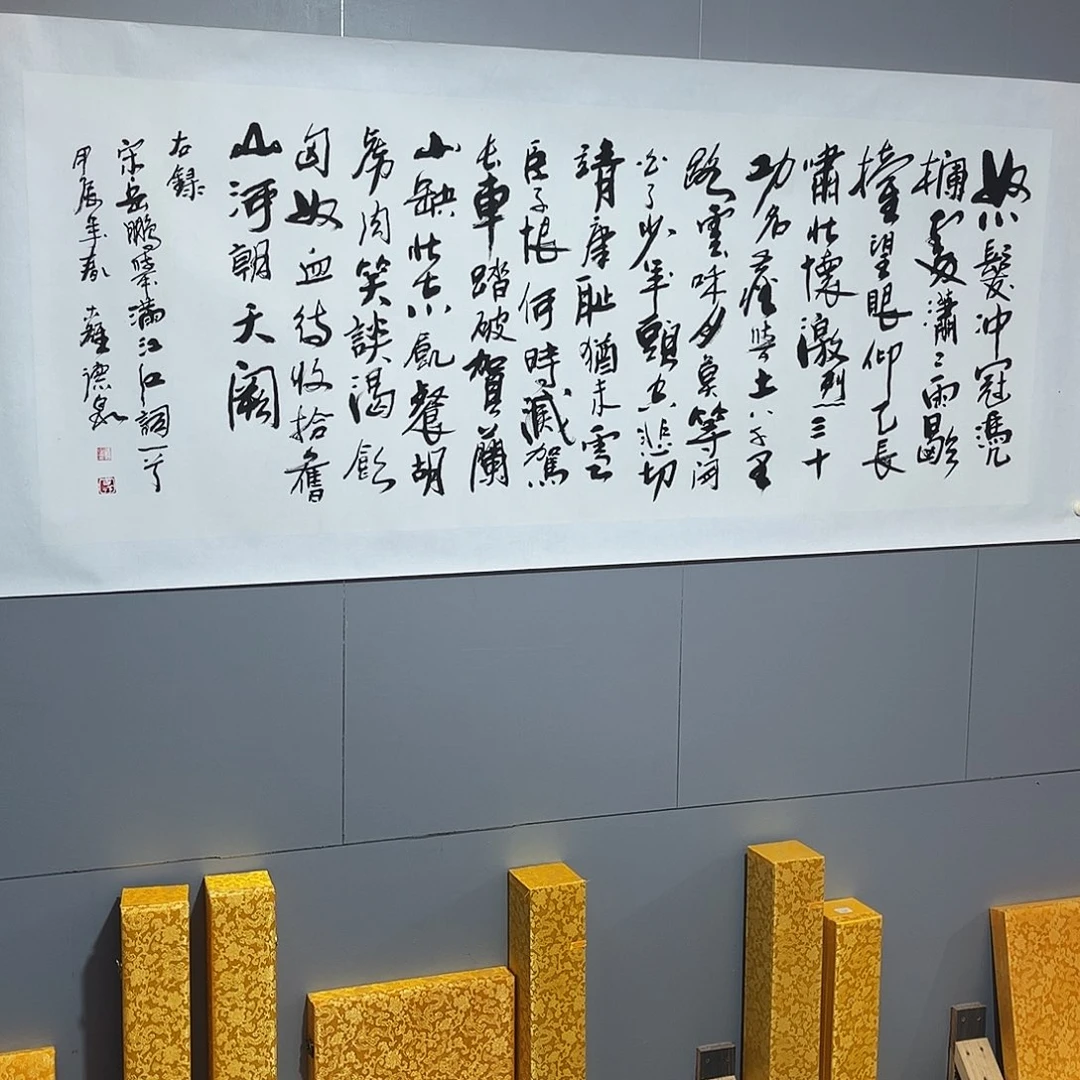 怒髮沖冠憑
欄處瀟〻雨歇
擡望眼仰天長
嘯壯懷激烈三十
功名塵與土八千里
路雲和月莫等閑
白了少年頭空悲切
靖康恥猶未雪
臣子恨何時滅駕
長車踏破賀蘭
山缺壯志飢餐胡
虜肉笑談渴飲
匈奴血待收拾舊
山河朝天闕
右錄
宋岳鵬舉滿江紅詞一首
甲辰年春